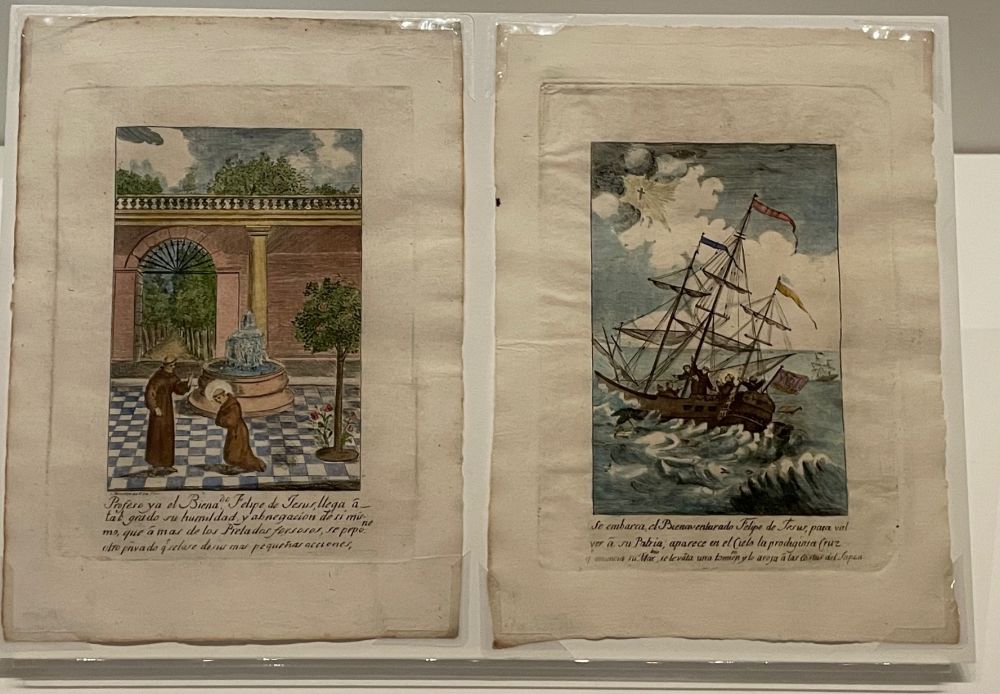 Profeso ya el Biena.do Felipe de Jesus, llega â
tal grado su humildad, y abnegacion de si mis-
mo, que â mas de los Prelados forsosos, se propone
otro privado q.e zelase de sus mas pequeñas acciones,
Se embarca el Buenaventurado Felipe de Jesus, para vol
ver â su Patria; aparece en el Cielo la prodigiosa Cruz
q anuncia su Mar.tirio, se levãta una tormẽn y lo aroja â las Costas del Japon